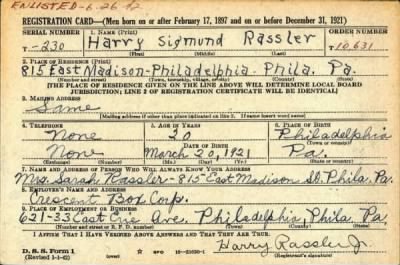 ENLISTED-6-26-42
REGISTRATION CARD—(Men born on or after February 17, 1897 and on or before December 31, 1921)
SERIAL NUMBER 1. NAME (Print) ORDER NUMBER
T-230 Harry Sigmund Rassler T 10,631
(First) (Middle) (Last)
2. PLACE OF RESIDENCE (Print)
815 East Madison-Philadelphia Phila. Pa.
(Number and street) (Town, township, village, or city) (County) (State)
[THE PLACE OF RESIDENCE GIVEN ON THE LINE ABOVE WILL DETERMINE LOCAL BOARD
JURISDICTION; LINE 2 OF REGISTRATION CERTIFICATE WILL BE IDENTICAL]
3. MAILING ADDRESS
Same
[Mailing address if other than place indicated on line 2. If same insert word same]
4. TELEPHONE 5. AGE IN YEARS 6. PLACE OF BIRTH
None 20 Philadelphia
DATE OF BIRTH (Town or county)
None March 20, 1921 Pa.
(Exchange) (Number) (Mo.) (Day) (Yr.) (State or country)
7. NAME AND ADDRESS OF PERSON WHO WILL ALWAYS KNOW YOUR ADDRESS
Mrs. Sarah Rassler-815 East Madison St. Phila. Pa.
8. EMPLOYER'S NAME AND ADDRESS
Crescent Box Corp.
9. PLACE OF EMPLOYMENT OR BUSINESS
621-33 East Erie Ave. Philadelphia, Phila. Pa.
(Number and street or R. F. D. number) (Town) (County) (State)
I AFFIRM THAT I HAVE VERIFIED ABOVE ANSWERS AND THAT THEY ARE TRUE.
D. S. S. Form 1 Harry Rassler Jr.
(Revised 1-1-42) (over) 16-21630-1 (Registrant's signature)